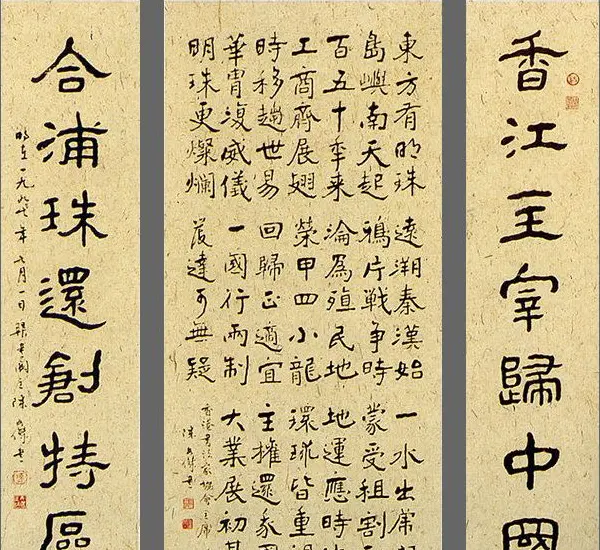 香江主宰歸中國
東方有明珠 遠溯秦漢始 一水出
島嶼南天起 鴉片戰爭時 蒙受租割
百五十年來 淪為殖民地 地運應時
工商齊展翅 榮甲四小龍 環球皆重
時移趨世易 回歸正適宜 主權還
華胄復威儀 一國行兩制 大業展初
明珠更燦爛 發達可無疑
香港書法家協會主席
陳書
合浦珠還創特區
一九九七年七月一日 陳書